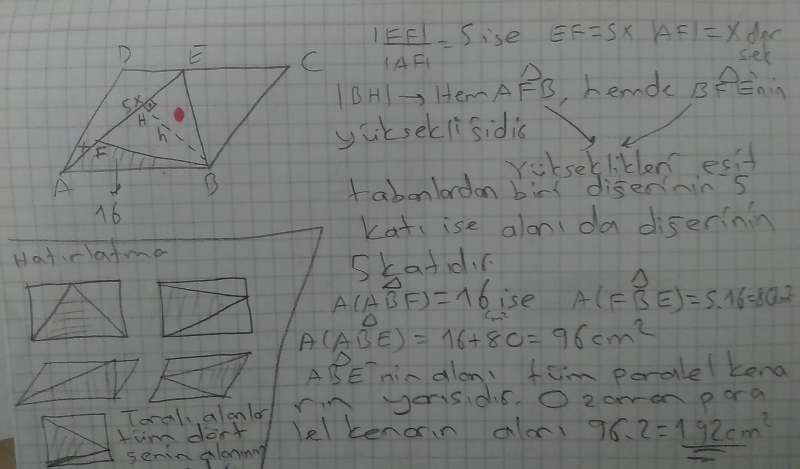 |EF| = 5 ise EF=5x |AF|=x der
|AF| sek
|BH| → Hem AFB, hemde BFE'nin
yüksekliğidir
Yükseklikleri eşit
tabanlardan biri diğerinin 5
katı ise alanı da diğerinin
5 katıdır.
A(ABF)=16 ise A(FBE)=5.16=80
cm²
A(ABE)=16+80=96cm²
ABE'nin alanı tüm paralel kena
rın yarısıdır. O zaman para
lel kenarın alanı 96.2=192cm²
D E C
5x
H
h
x F
A B
16
Hatırlatma
Taralı alanlar
tüm dört
genin alanının